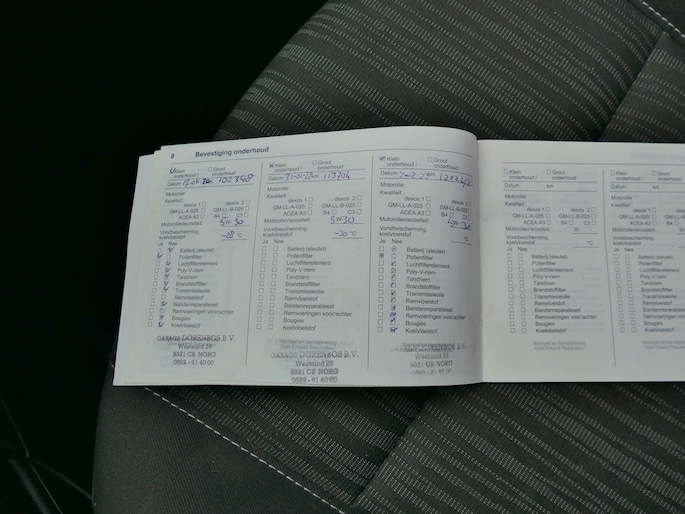 8 Bevestiging onderhoud
Klein onderhoud / Groot onderhoud
Datum km 102348
Motorolie
Kwaliteit
dexos 1 dexos 2
GM-LL-A-025 GM-LL-B-025
ACEA A3 B4 C3
Motorolieviscositeit: 5W30
Vorstbescherming, koelvloeistof -28 °C
Ja Nee
Batterij (sleutel)
Pollenfilter
Luchtfilterelement
Poly-V-riem
Tandriem
Brandstoffilter
Transmissieolie
Remvloeistof
Bandenreparatieset
Remvoeringen voor/achter
Bougies
Koelvloeistof
GARAGE DORENBOS B.V.
Westeind 26
9331 CB NORG
0592 - 61 40 00
Klein onderhoud / Groot onderhoud
Datum km 119704
Motorolie
Kwaliteit
dexos 1 dexos 2
GM-LL-A-025 GM-LL-B-025
ACEA A3 B4 C3
Motorolieviscositeit: 5W30
Vorstbescherming, koelvloeistof -30 °C
Ja Nee
Batterij (sleutel)
Pollenfilter
Luchtfilterelement
Poly-V-riem
Tandriem
Brandstoffilter
Transmissieolie
Remvloeistof
Bandenreparatieset
Remvoeringen voor/achter
Bougies
Koelvloeistof
Stempel en handtekening
GARAGE DORENBOS B.V.
Westeind 26
9331 CB NORG
0592 - 61 40 00
Klein onderhoud / Groot onderhoud
Datum km
Motorolie
Kwaliteit
dexos 1 dexos 2
GM-LL-A-025 GM-LL-B-025
ACEA A3 B4 C3
Motorolieviscositeit:
Vorstbescherming, koelvloeistof °C
Ja Nee
Batterij (sleutel)
Pollenfilter
Luchtfilterelement
Poly-V-riem
Tandriem
Brandstoffilter
Transmissieolie
Remvloeistof
Bandenreparatieset
Remvoeringen voor/achter
Bougies
Koelvloeistof
Stempel en handtekening
GARAGE DORENBOS B.V.
Westeind 26
9331 CB NORG
0592 - 61 40 00
Klein onderhoud / Groot onderhoud
Datum: km
Motorolie
Kwaliteit
dexos 1 dexos 2
GM-LL-A-025 GM-LL-B-025
ACEA A3 B4 C3
Motorolieviscositeit: W
Vorstbescherming, koelvloeistof °C
Ja Nee
Batterij (sleutel)
Pollenfilter
Luchtfilterelement
Poly-V-riem
Tandriem
Brandstoffilter
Transmissieolie
Remvloeistof
Bandenreparatieset
Remvoeringen voor/achter
Bougies
Koelvloeistof
Stempel en handtekening
Opel Erkend Reparateur
Klein onderhoud / Groot onderhoud
Datum: km
Motorolie
Kwaliteit
dexos 1
GM-LL-A-025 GM-LL-B-025
ACEA A3 B4
Motorolieviscositeit:
Vorstbescherming, koelvloeistof
Ja Nee
Batterij (sleutel)
Pollenfilter
Luchtfilterelement
Poly-V-riem
Tandriem
Brandstoffilter
Transmissieolie
Remvloeistof
Bandenreparatieset
Remvoeringen voor/achter
Bougies
Koelvloeistof